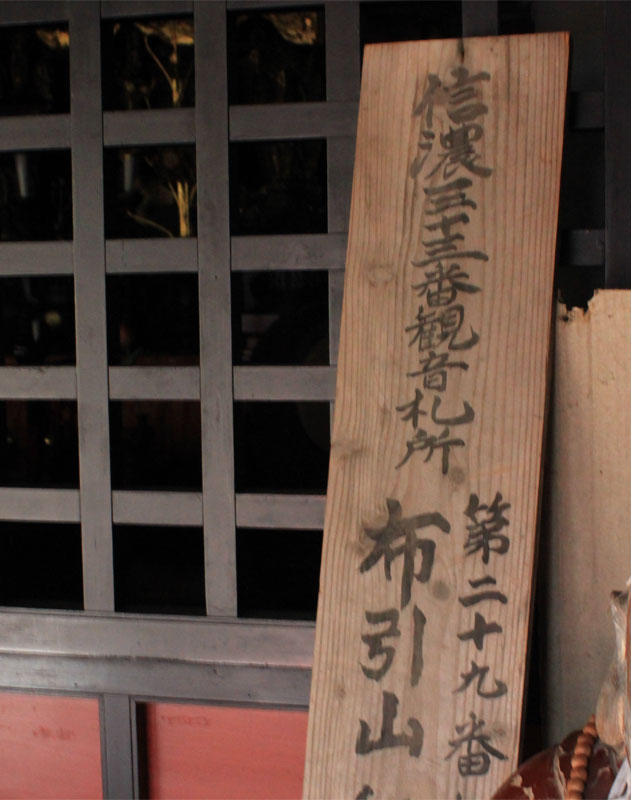 信濃三十三番観音札所
第二十九番
布引山